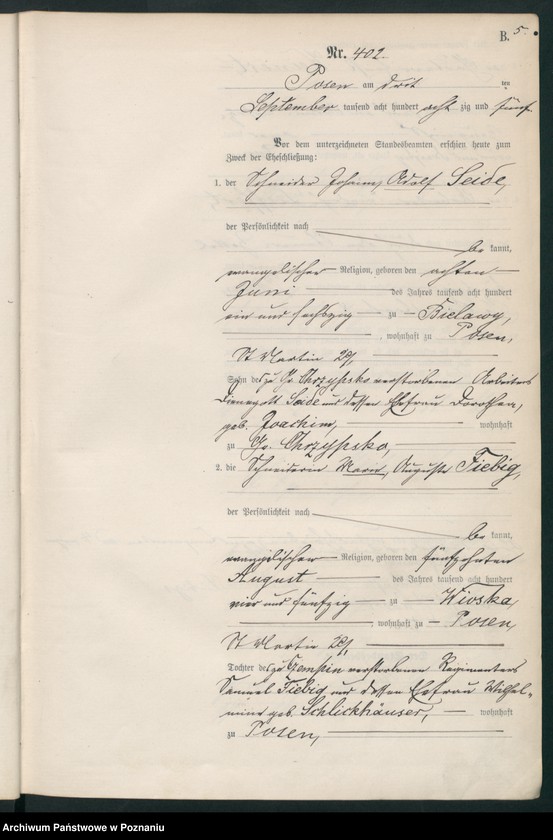 B. 5.
Nr. 402.
Posen am drit ten
September tausend acht hundert acht zig und fünf.
Vor dem unterzeichneten Standesbeamten erschien heute zum
Zweck der Eheschließung:
1. der Schneider Johann, Adolf Seide,
der Persönlichkeit nach
be kannt,
evangelischer Religion, geboren den achten
Juni des Jahres tausend acht hundert
ein und sechszig zu Bielawy,
, wohnhaft zu Posen,
St Martin 28,
Sohn des zu Gr. Chrzypsko verstorbenen Arbeiters
Seide und dessen Ehefrau Dorothea,
geb. Joachim, wohnhaft
zu Gr. Chrzypsko,
2. die Schneiderin Marie, Auguste Fiebig,
der Persönlichkeit nach
be kannt,
evangelischer Religion, geboren den fünfzehnten
August des Jahres tausend acht hundert
vier und fünfzig zu Kioska,
, wohnhaft zu Posen,
St Martin 28,
Tochter des zu Gempin verstorbenen
Samuel Fiebig und dessen Ehefrau Wilhel-
mine geb. Schlickhäuser, wohnhaft
zu Posen,
Archiwum Państwowe w Poznaniu